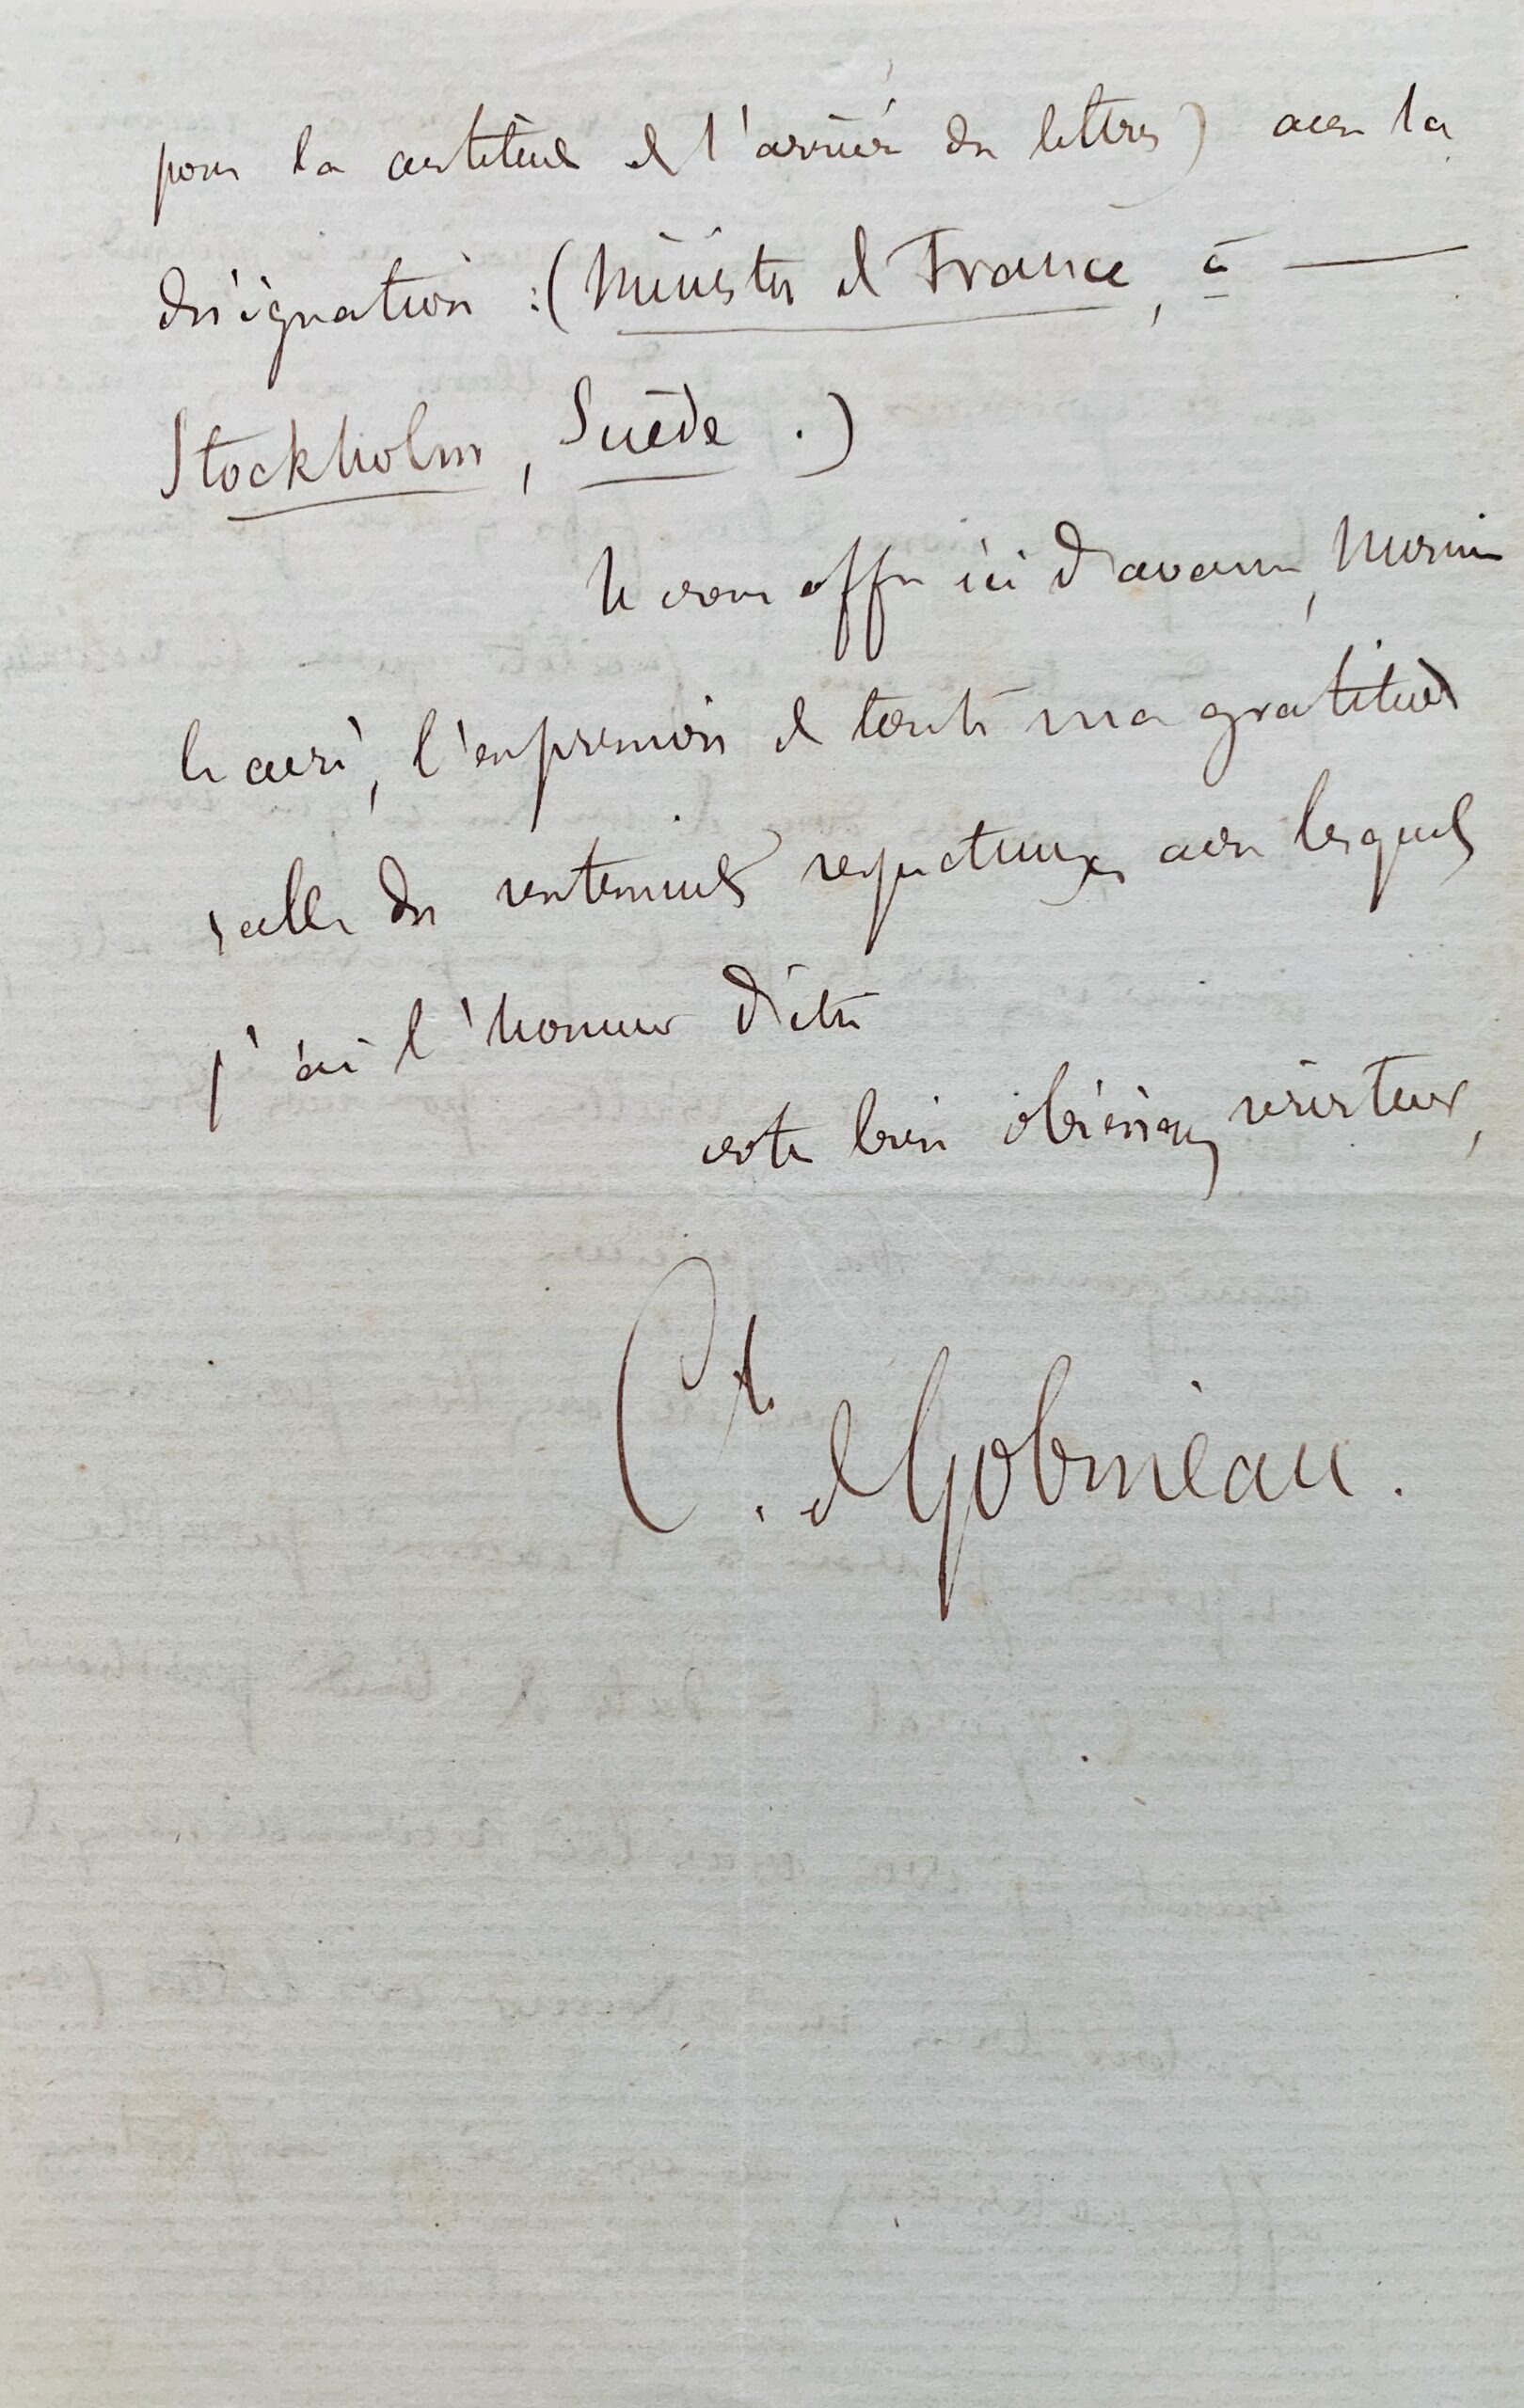 pour la certitude de l'arrivée des lettres) avec la
désignation : (Ministre de France, à —
Stockholm, Suède .)
Je vous offre ici d'avance, Monsieur
le curé, l'expression de toute ma gratitude
& celle des sentiments respectueux avec lesquels
j'ai l'honneur d'être
votre bien obéissant serviteur,
Cte. de Gobineau.